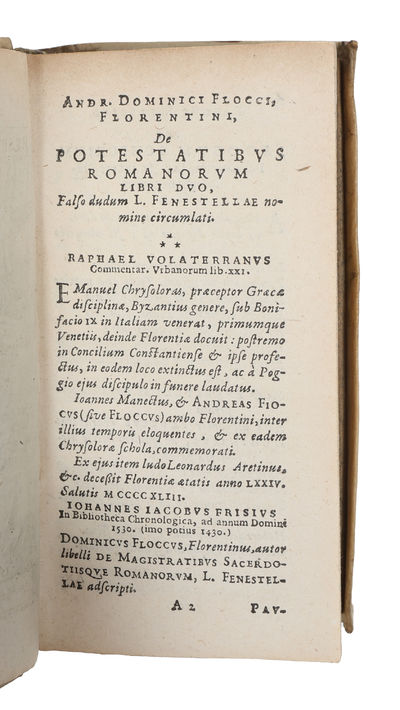 ANDR. DOMINICI FLOCCI,
FLORENTINI,
De
POTESTATIBVS
ROMANORVM
LIBRI DVO,
Falso dudum L. FENESTELLAE no-
mine circumlati.
*
* *
RAPHAEL VOLATERRANVS
Commentar. Vrbanorum lib. XXI.
EManuel Chrysoloras, præceptor Græcæ
disciplinæ, Byzantius genere, sub Boni-
facio IX in Italiam venerat, primumque
Venetiis, deinde Florentiæ docuit: postremo
in Concilium Constantiense & ipse profe-
ctus, in eodem loco extinctus est, ac à Pog-
gio ejus discipulo in funere laudatus.
Ioannes Manectus, & ANDREAS FIO-
CVS (sive FLOCCVS) ambo Florentini, inter
illius temporis eloquentes, & ex eadem
Chrysoloræ schola, commemorati.
Ex ejus item ludo Leonardus Aretinus,
&c. decessit Florentiæ ætatis anno LXXIV.
Salutis MCCCCXLIII.
IOHANNES IACOBVS FRISIVS
In Bibliotheca Chronologica, ad annum Domini
1530. (imo potius 1430.)
DOMINICVS FLOCCVS, Florentinus, autor
libelli DE MAGISTRATIBVS SACERDO-
TIISQVE ROMANORVM, L. FENESTEL-
LAE adscripti.
A 2 PAV-